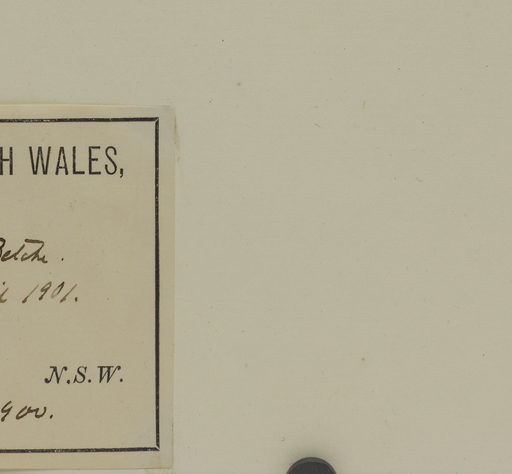 H WALES,
Betche.
il 1901.
N.S.W.
gov.